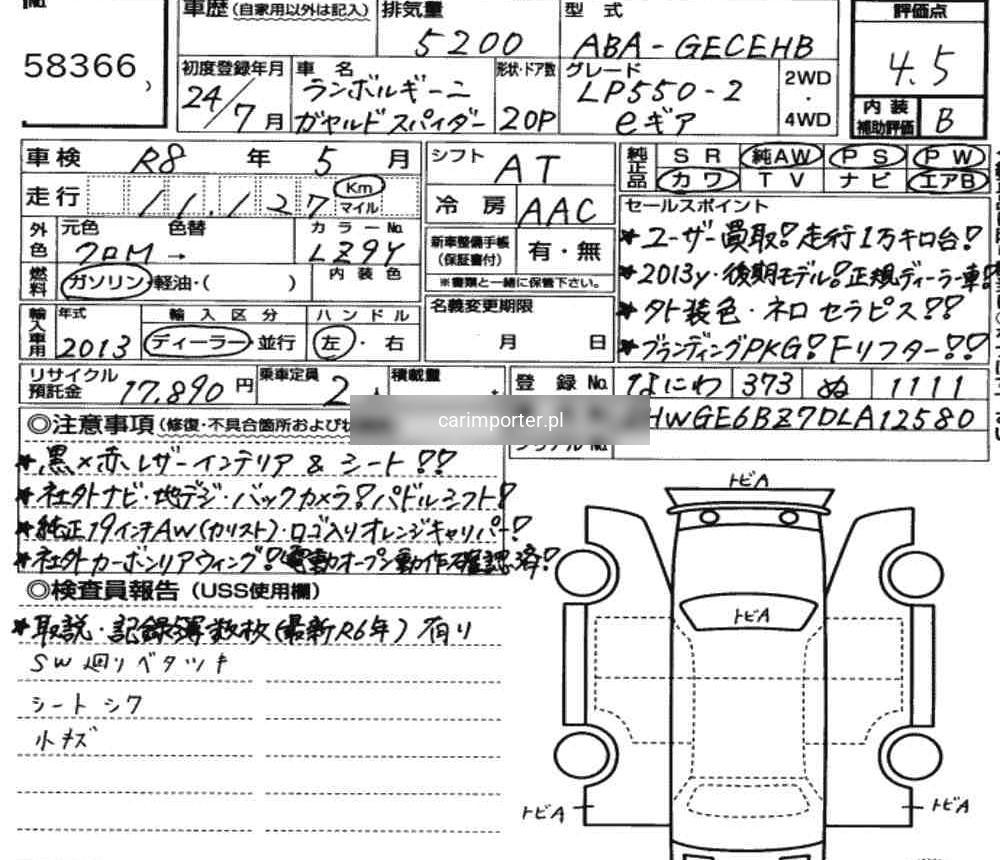 No.
58366
車歴 (自家用以外は記入)
排気量
5200
型式
ABA-GECEHB
評価点
4.5
内装補助評価
B
初度登録年月
24/7月
車名
ランボルギーニ
ガヤルドスパイダー
形状・ドア数
2OP
グレード
LP550-2
eギア
2WD
・
4WD
車検
R8 年 5 月
シフト
AT
純正品
SR 純AW PS PW
カワ TV ナビ エアB
走行
11,127
Km
マイル
冷房
AAC
外色
元色 色替
クロM →
カラーNo.
LZ9Y
内装色
燃料
ガソリン・軽油・( )
新車整備手帳
(保証書付)
有・無
※書類と一緒に保管下さい。
輸入車用
年式
2013
輸入区分
ディーラー・並行
ハンドル
左・右
名義変更期限
月 日
セールスポイント
★ユーザー買取!走行1万キロ台!
★2013y・後期モデル!正規ディーラー車!
★外装色・ネロセラピス!!
★ブランディングPKG!Fリフター!!
リサイクル
預託金
17,890円
乗車定員
2人
積載量
登録No.
なにわ 373 ぬ 1111
HWGE6BZ7DLA12580
carimporter.pl
◎注意事項 (修復・不具合箇所および
★黒×赤レザーインテリア&シート!!
★社外ナビ・地デジ・バックカメラ!パドルシフト!
★純正19インチAW(カリスト)・ロゴ入りオレンジキャリパー!
★社外カーボンリアウィング!電動オープン動作確認済!
◎検査員報告 (USS使用欄)
★取説・記録簿数枚(最新R6年)有り
SW廻りベタツキ
シートシワ
小キズ
トビA
トビA
トビA
トビA